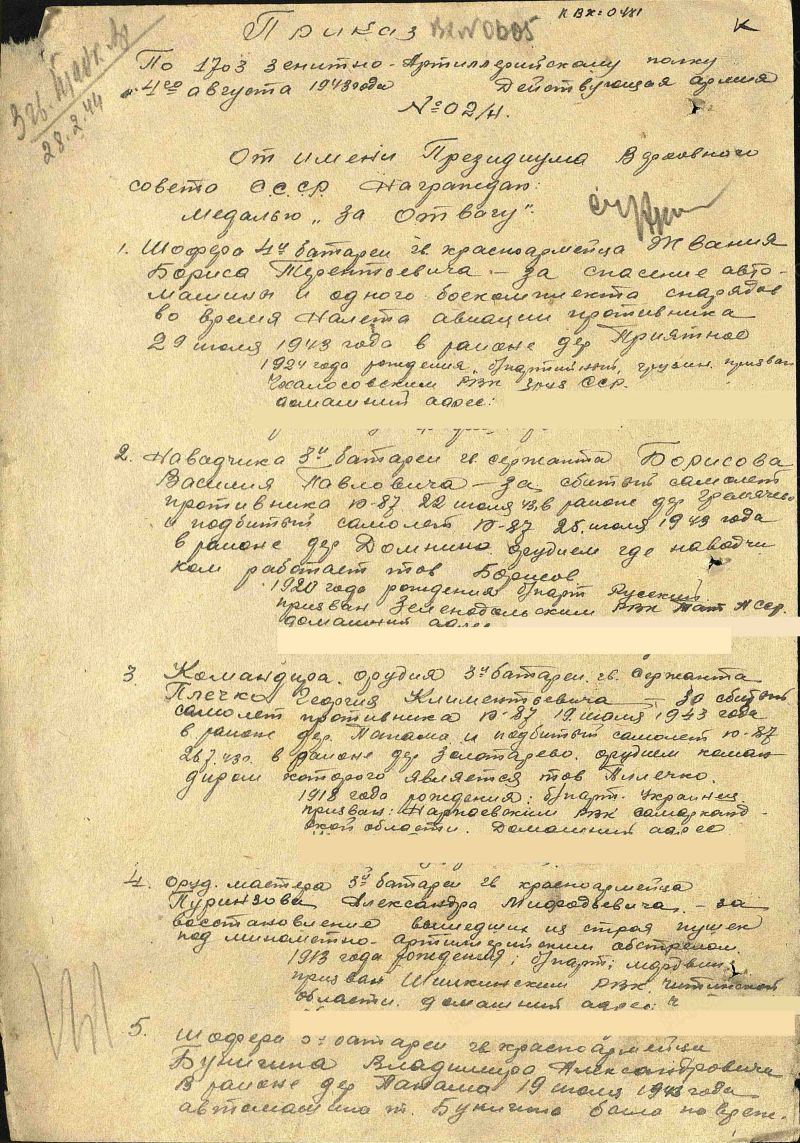 Приказ
К ВХ: 0481
К
По 1703 зенитно-Артиллерийскому полку
4го августа 1943 года Действующая армия
№ 02/Н.
28.2.44
От имени Президиума Верховного
совета С.С.С.Р. Награждаю:
Медалью „За Отвагу".
1. Шофера 4й батареи гв. красноармейца Жвания
Бориса Терентьевича – за спасение авто-
машины и одного боекомплекта снарядов
во время налета авиации противника
29 июля 1943 года в районе дер Приятное
1924 года рождения, б/партийный, грузин, призван
РВК Груз ССР.
домашний адрес:
2. Наводчика 3й батареи гв. сержанта Борисова
Василия Павловича – за сбитый самолет
противника Ю-87 22 июля 43, в районе дер
и подбитый самолет Ю-87 25 июля 1943 года
в районе дер Домнино орудием где наводчи
ком работает тов Борисов
1920 года рождения б/парт Русский.
призван РВК Тат АССР.
домашний адрес
3. Командира орудия 3й батареи гв. сержанта
Плечко Георгия Климентьевича – за сбитый
самолет противника Ю-87 19 июля 1943 года
в районе дер. Панама и подбитый самолет Ю-87
26.7.43г. в районе дер Золотарево. орудием коман-
диром которого является тов Плечко.
1918 года рождения; б/парт. Украинец
призван: Нарпаевским РВК самарканд-
ской области. Домашний адрес
4. оруд. мастера 3й батареи гв красноармейца
Александра – за
восстановление вышедших из строя пушек
под минометно-артиллерийским обстрелом.
1913 года рождения; б/парт; мордвин,
призван Шилкинским РВК Читинской
области. домашний адрес: Ч
5. Шофера батареи гв красноармейца
Буничина Владимира Александровича
В районе дер Панама 19 июля 1943 года
автомашина т. была повреж.